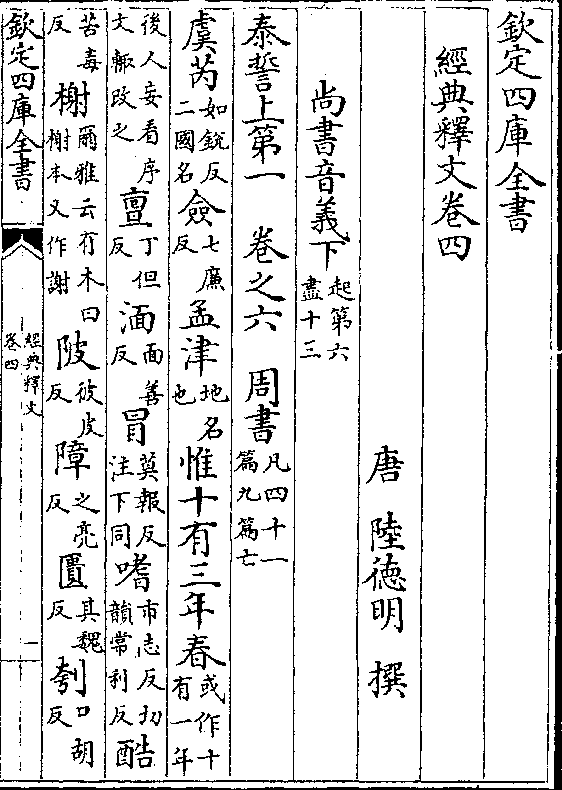 欽定四庫全書
經典釋文卷四
唐 陸德明 撰
尚書音義下起第六盡十三
泰誓上第一 卷之六 周書凡四十一篇九篇亡
虞芮如銳反二國名僉七廉反孟津地名也惟十有三年春或作十有一年
後人妄看序文輙改之亶丁但反湎面善反冒莫報反注下同嗜市志反切韻常利反酷
苦毒反榭爾雅云有木曰榭本又作謝陂彼皮反障之亮反匱其魏反刳口胡反
欽定四庫全書
經典釋文
卷四